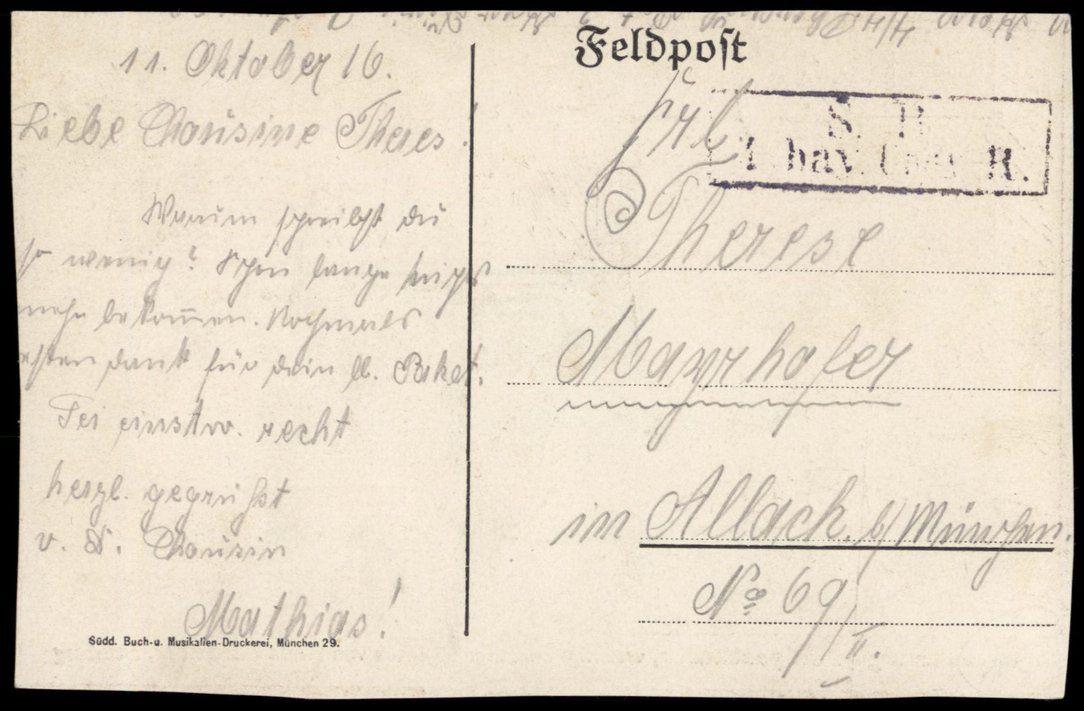 11. Oktober 16.
Liebe Chousine Theres!
Warum schreibst du
so wenig? Schon lange nichts
mehr bekommen. Nochmals
besten dank für dein lb. Paket.
Sei einstw. recht
herzl. gegrüßt
v. d. Chousin
Mathias!
Südd. Buch- u. Musikalien-Druckerei, München 29.
Feldpost
S. B.
1. bay. R.
Frl
Therese
Mayrhofer
in Allach. b/ München.
No 69/II.